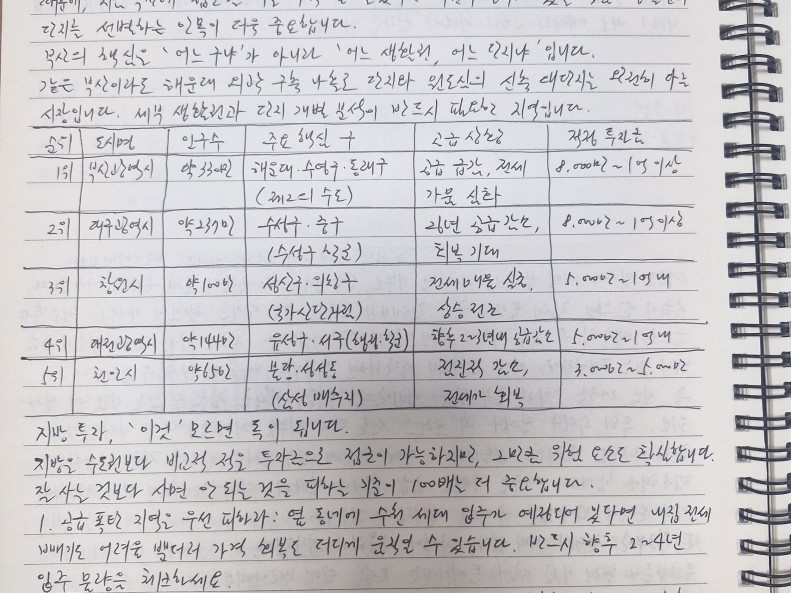 단지를 선별하는 안목이 더욱 중요합니다.
부산의 핵심은 '어느 구냐'가 아니라 '어느 생활권, 어느 단지냐'입니다.
같은 부산이라도 해운대 외곽 구축 나홀로 단지와 원도심의 신축 대단지는 완전히 다른
시장입니다. 세부 생활권과 단지 개별 분석이 반드시 필요한 지역입니다.
순위 도시명 인구수 주요 핵심 구 공급 상황 적정 투자금
1위 부산광역시 약330만 해운대·수영구·동래구 공급 급감, 전세 8.000만~1억 이상
(제2의 수도) 가뭄 심화
2위 대구광역시 약237만 수성구·중구 26년 공급 감소, 8.000만~1억 이상
(수성구 학군) 회복 기대
3위 창원시 약100만 성산구·의창구 전세 매물 실종, 5.000만~1억 내
(국가산단거점) 상승 전조
4위 대전광역시 약144만 유성구·서구(행정·학군) 향후 2~3년내 공급감소 5.000만~1억 내
5위 천안시 약65만 불당·성성동 점진적 감소, 3.000만~5.000만
(삼성 배후지) 전세가 회복
지방 투자, '이것' 모르면 독이 됩니다.
지방은 수도권보다 비교적 적은 투자금으로 접근이 가능하지만, 그만큼 위험 요소도 확실합니다.
잘 사는 것보다 사면 안 되는 것을 피하는 기준이 100배는 더 중요합니다
1. 공급 폭탄 지역은 우선 피하라: 옆 동네에 수천 세대 입주가 예정되어 있다면 내집 전세
빼기도 어려울 뿐더러 가격 회복도 더디게 움직일 수 있습니다. 반드시 향후 2~4년
입주 물량을 체크하세요.